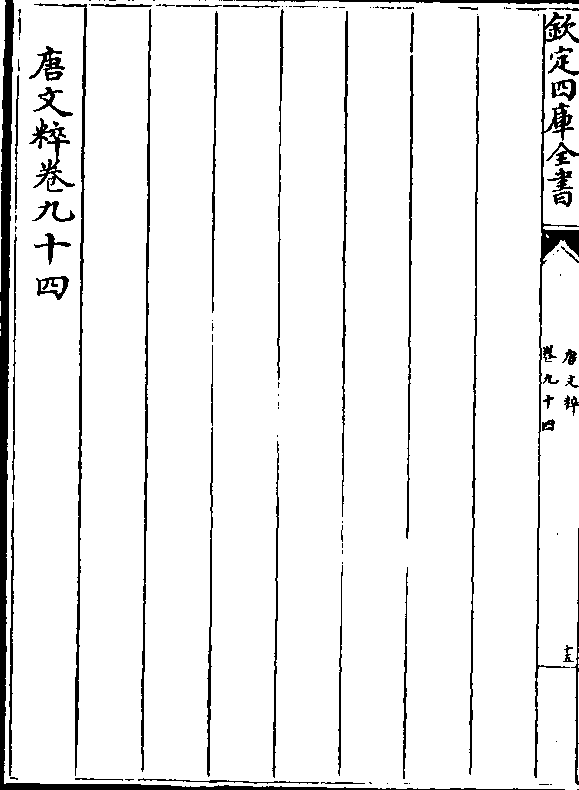 欽定四庫全書
唐文粹
卷九十四
十五
唐文粹卷九十四